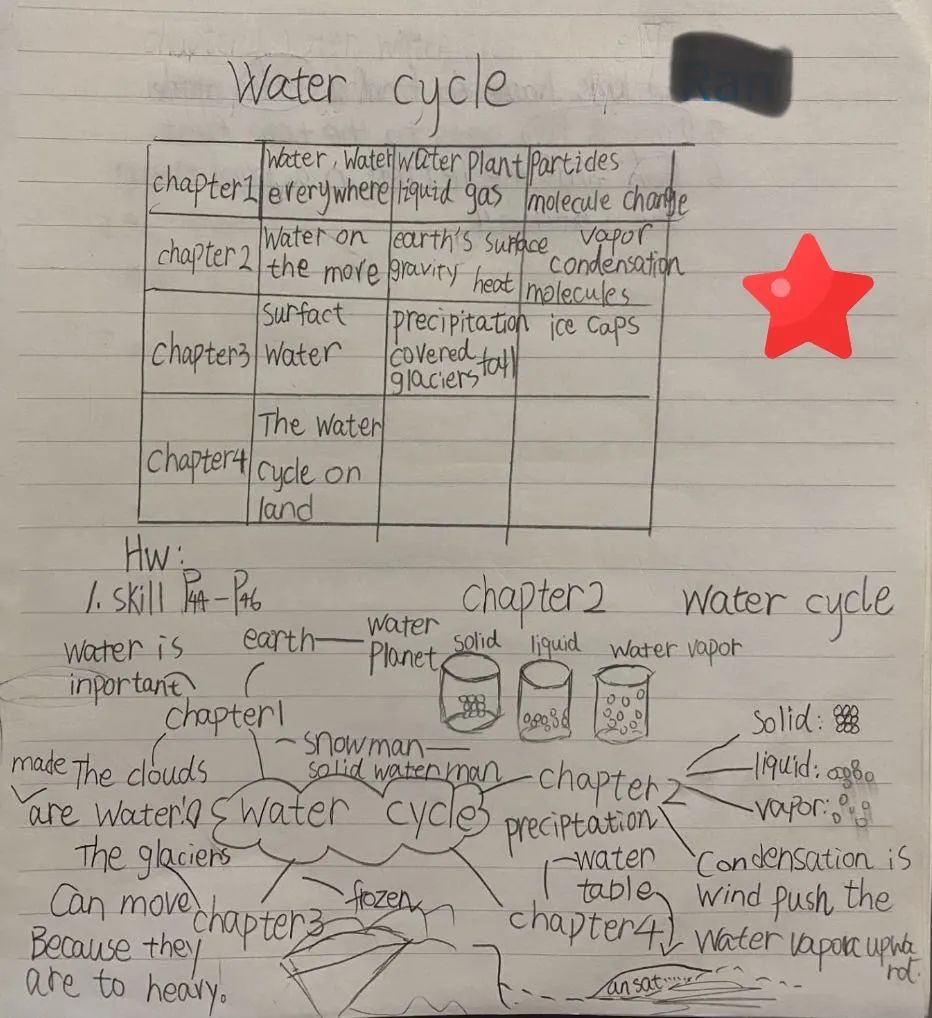 Water cycle
chapter1
Water, Water
everywhere
water plant
liquid gas
Particles
molecule change
chapter2
Water on
the more
earth's surface
gravity heat
vapor
condensation
molecules
Chapter3
surfact
Water
precipitation
covered fall
glaciers
ice caps
Chapter4
The Water
cycle on
land
Hw:
1. skill P44-P46
chapter2 Water cycle
Water is
inportant
earth
Water
Planet
solid liquid Water vapor
chapter1
snowman
solid waterman
made The clouds
are Water
Water cycle
chapter2
solid:
liquid:
vapor:
preciptation
The glaciers
Can move
Because they
are to heavy.
chapter3
frozen
water
table
chapter4
Condensation is
Wind push the
Water vapor